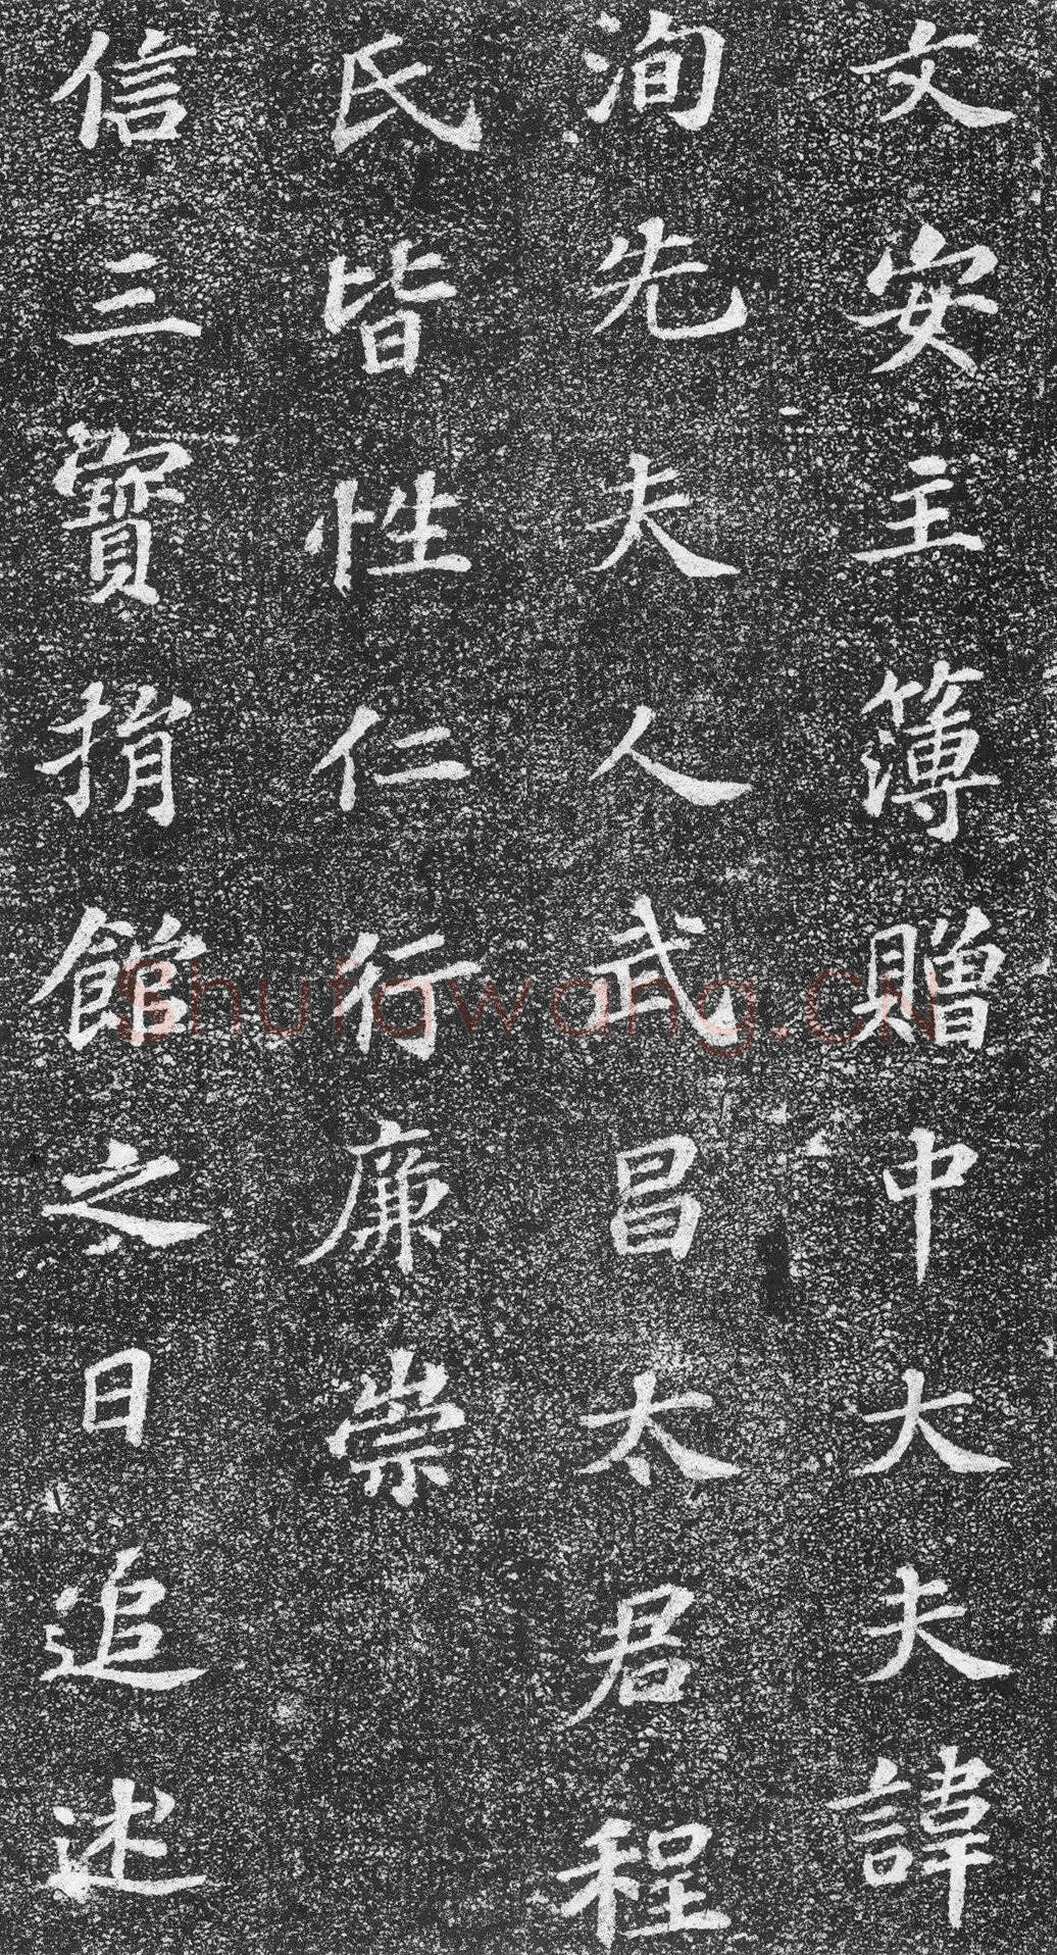 文安主簿贈中大夫諱
洵先夫人武昌太君程
氏皆性仁行廉崇
信三寶捐館之日追述
shufawang.CN